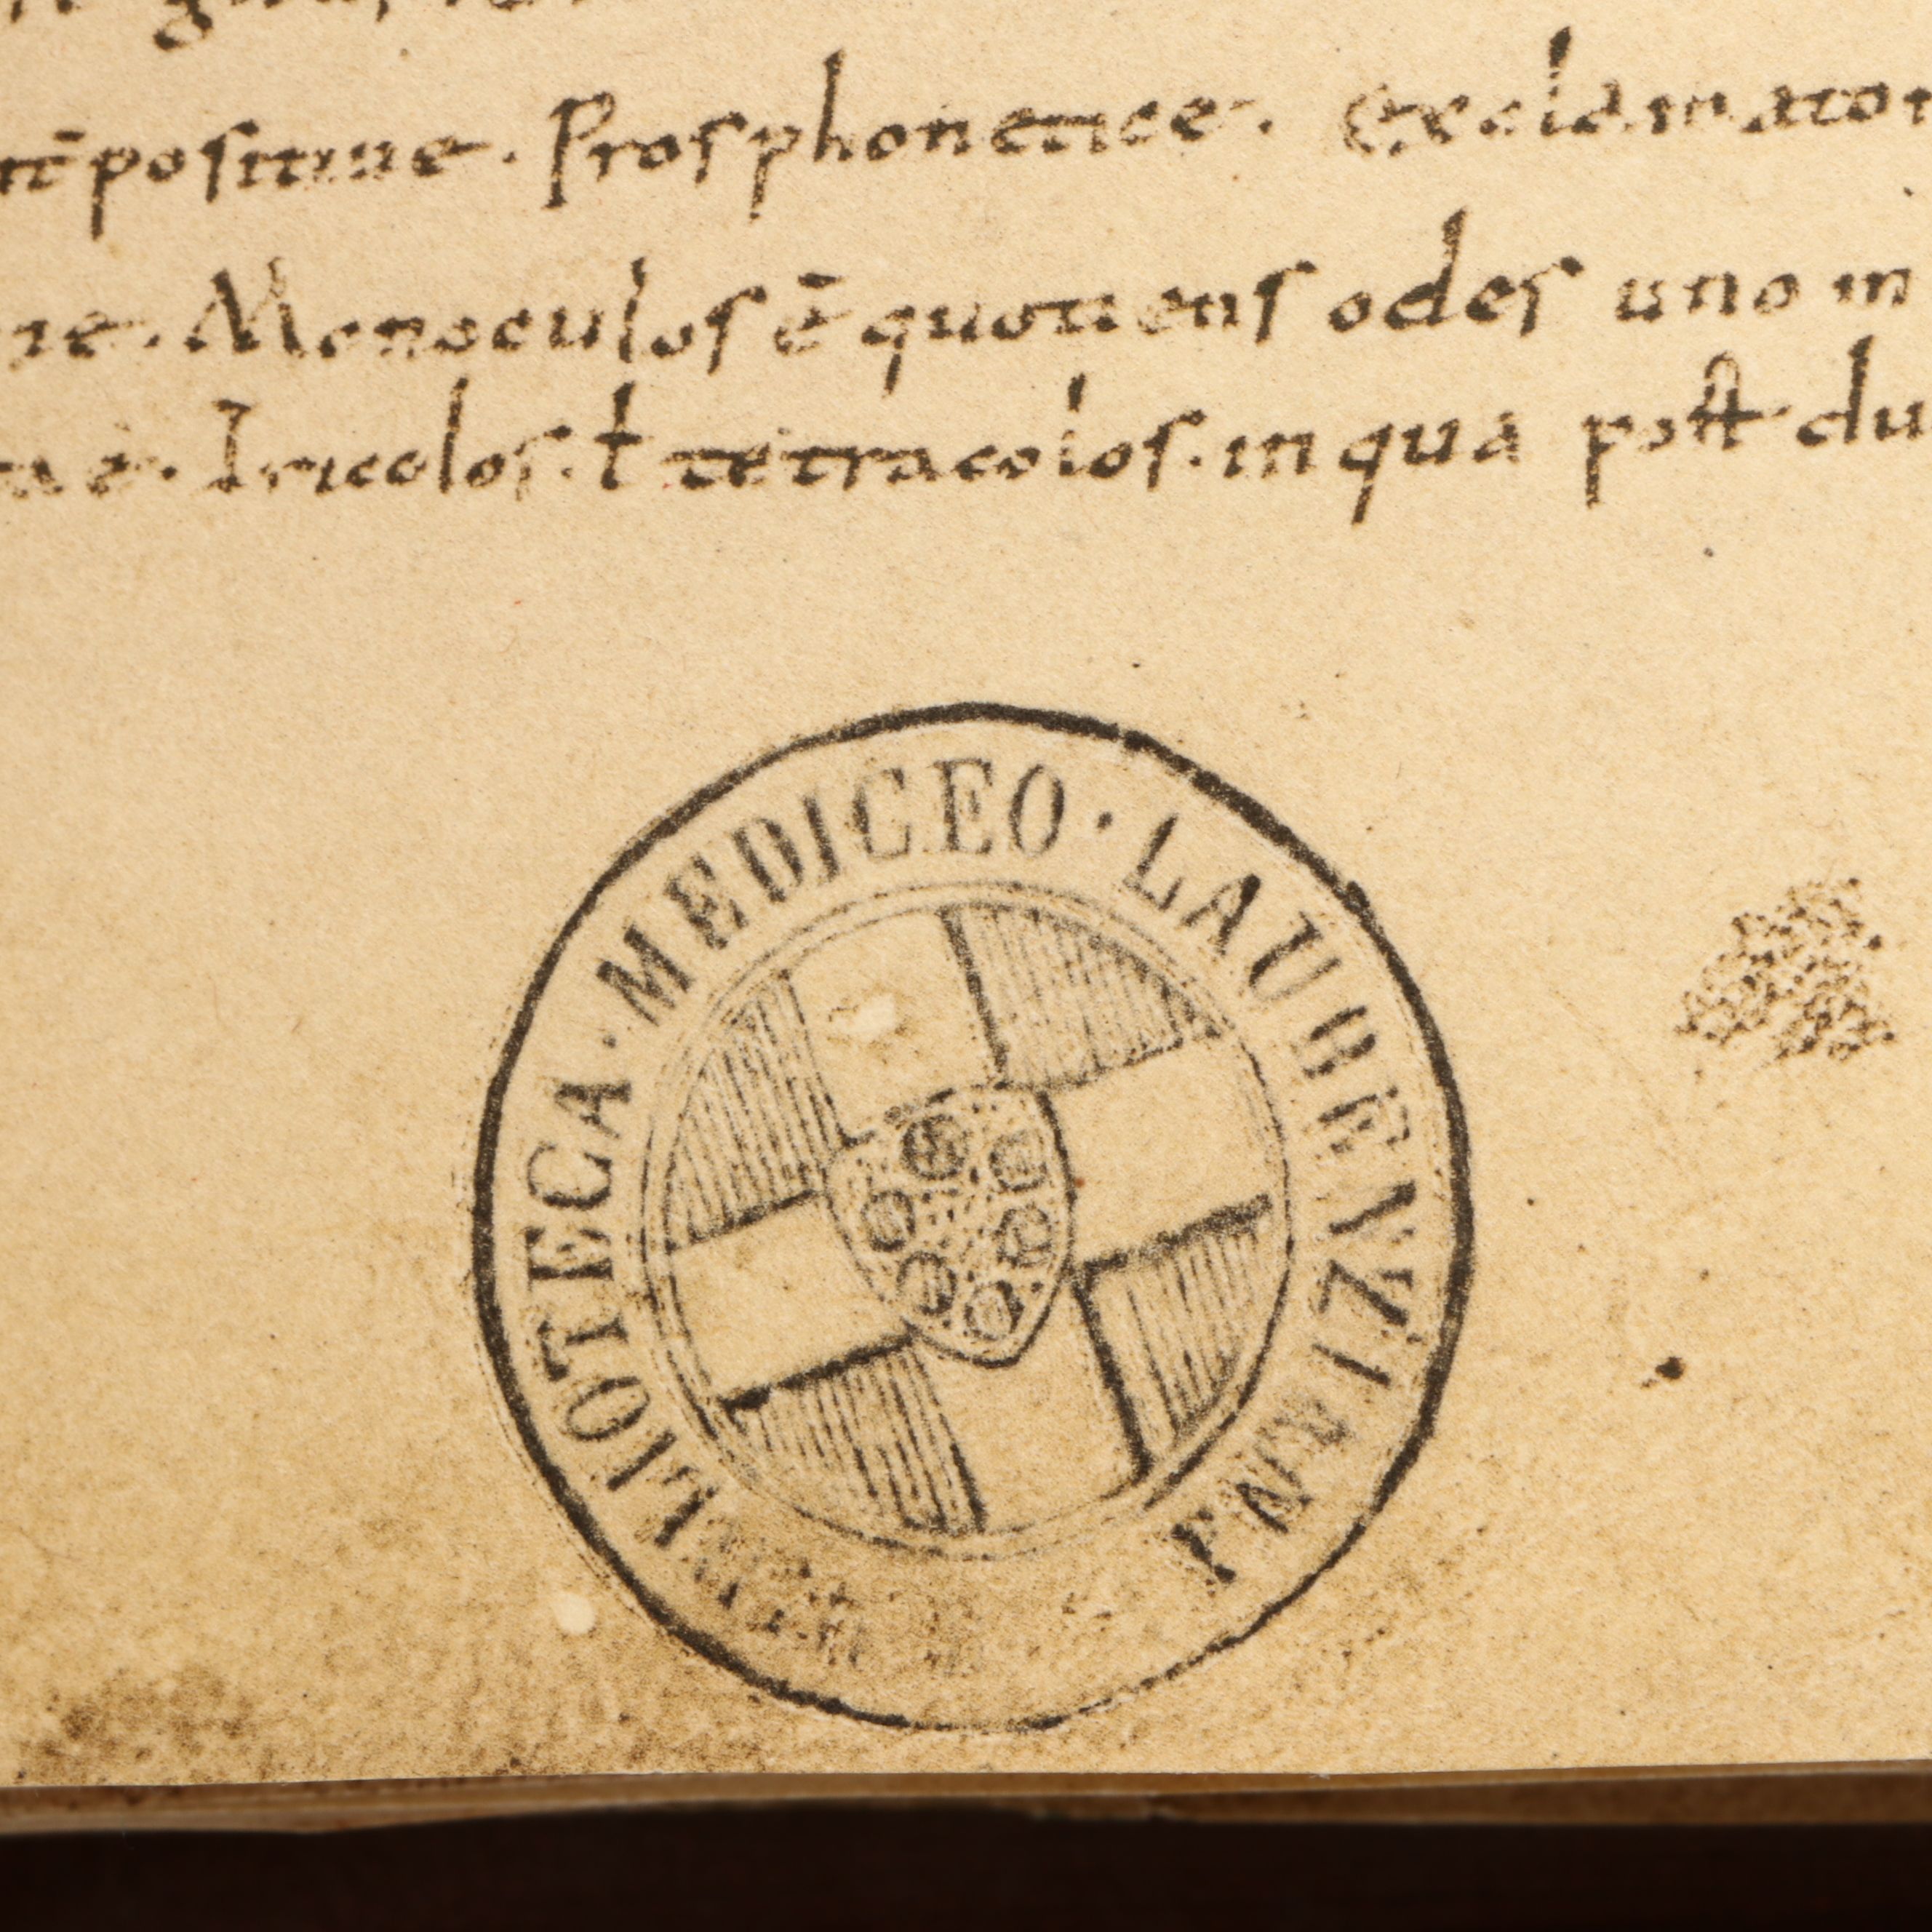 positiuae · Prosphonetice · exclamator
Monoculos ē quotiens odes uno in
Tricolos · ł tetracolos · in qua post du
LIOTECA · MEDICEO · LAURENZIANA